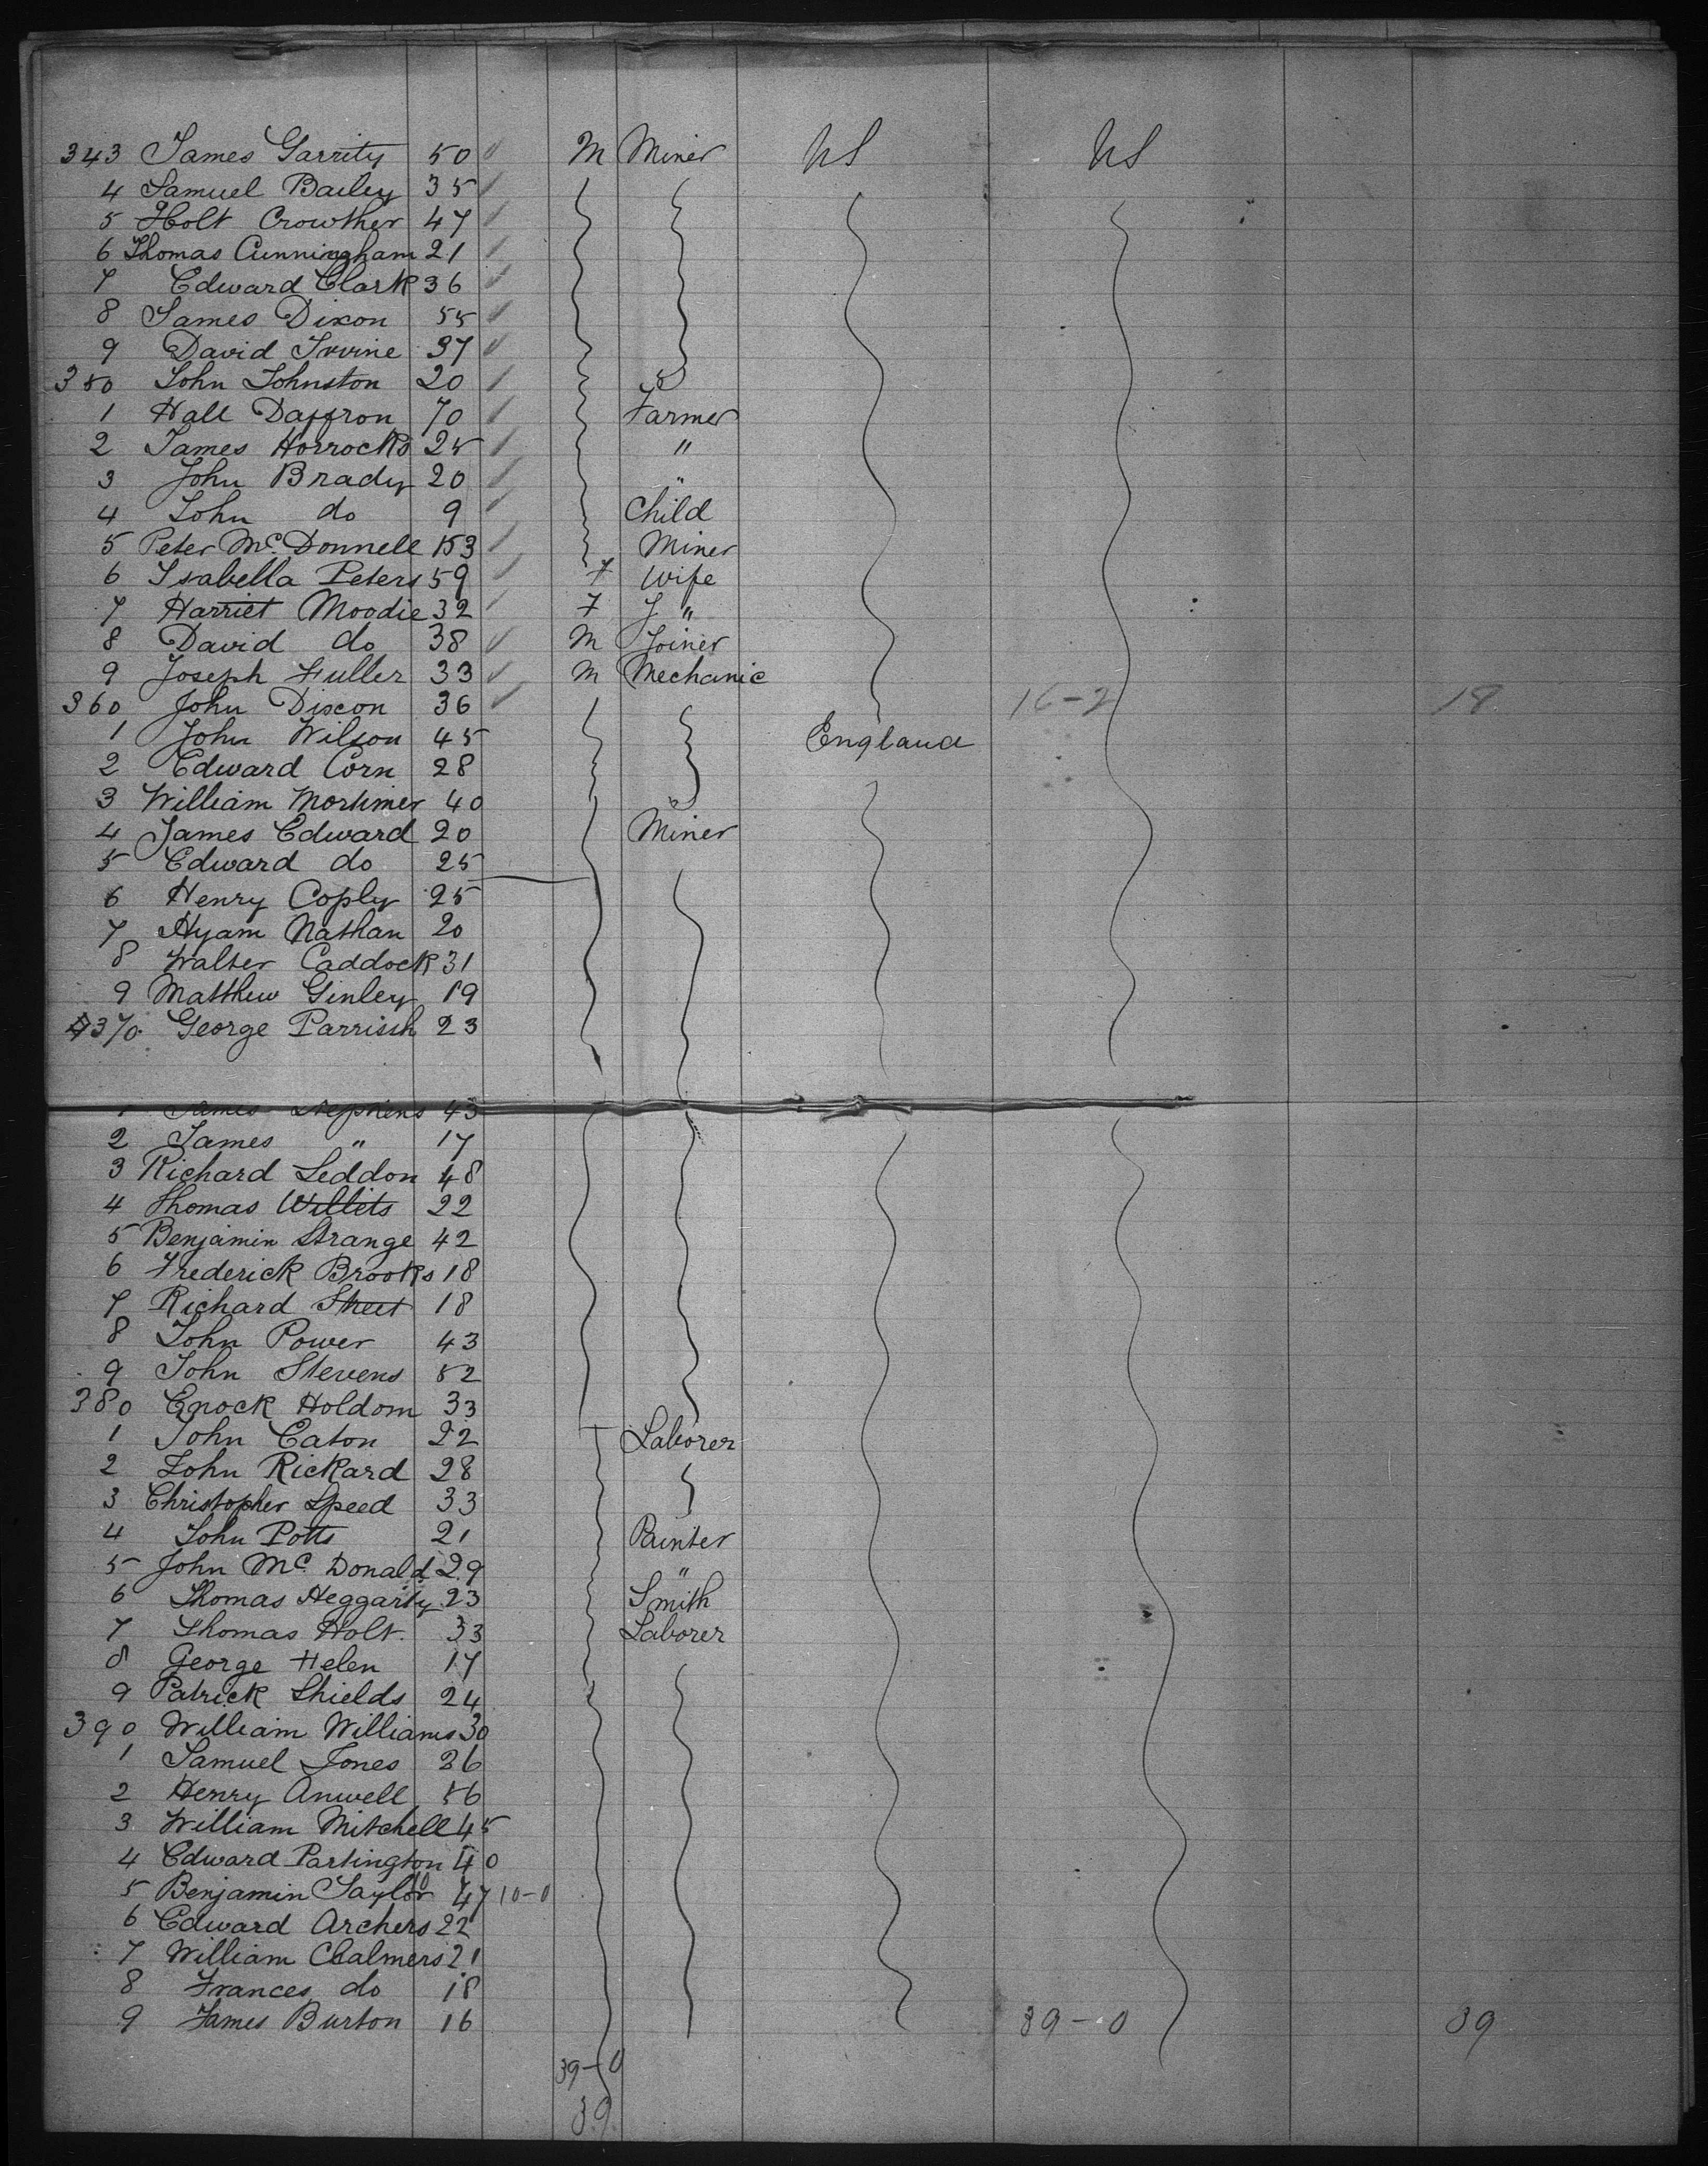 343 James Garrity 50 M Miner US US
4 Samuel Bailey 35
5 Holt Crowther 47
6 Thomas Cunningham 21
7 Edward Clark 36
8 James Dixon 55
9 David Irvine 37
350 John Johnston 20
1 Hall Daffron 70 Farmer
2 James Horrocks 25 "
3 John Brady 20 "
4 John do 9 Child
5 Peter McDonnell 53 Miner
6 Isabella Peters 59 F Wife
7 Harriet Moodie 32 F "
8 David do 38 M Joiner
9 Joseph Fuller 33 M Mechanic
360 John Dixon 36 16-2 18
1 John Wilson 45 England
2 Edward Corn 28
3 William Mortimer 40
4 James Edward 20 Miner
5 Edward do 25
6 Henry Copley 25
7 Hyam Nathan 20
8 Walter Caddock 31
9 Matthew Ginley 19
370 George Parrish 23
1 James Stephens 43
2 James " 17
3 Richard Seddon 48
4 Thomas Willits 22
5 Benjamin Strange 42
6 Frederick Brooks 18
7 Richard Street 18
8 John Power 43
9 John Stevens 52
380 Enock Holdom 33
1 John Eaton 22 Laborer
2 John Rickard 28
3 Christopher Speed 33
4 John Potts 21 Painter
5 John McDonald 29 "
6 Thomas Heggarty 23 Smith
7 Thomas Holt 33 Laborer
8 George Helen 17
9 Patrick Shields 24
390 William Williams 30
1 Samuel Jones 26
2 Henry Anwell 56
3 William Mitchell 45
4 Edward Partington 40
5 Benjamin Taylor 47 10-0
6 Edward Archers 22
7 William Chalmers 21
8 Frances do 18
9 James Burton 16 39-0 39
39-0
39